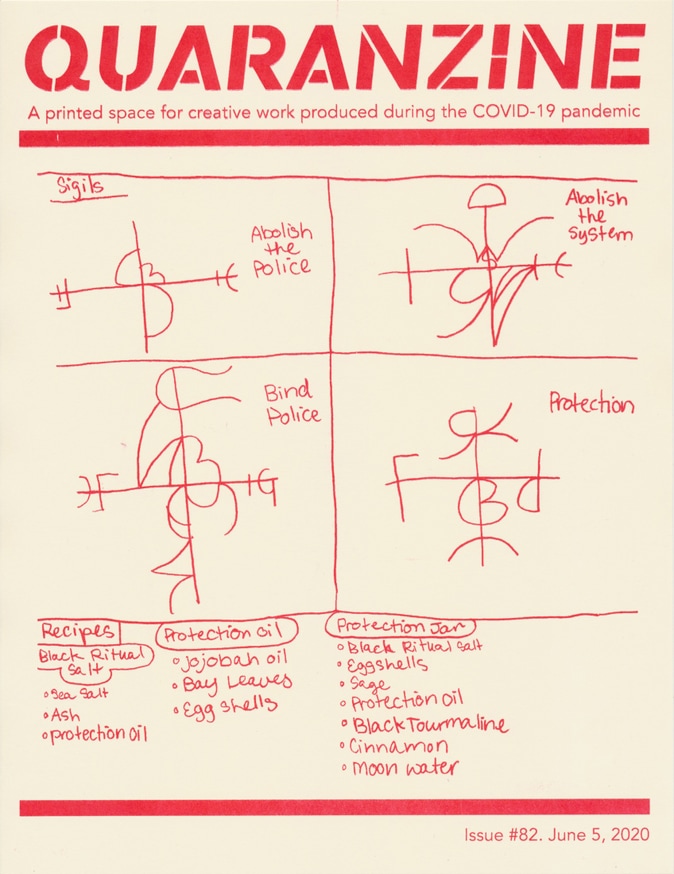 QUARANZINE
A printed space for creative work produced during the COVID-19 pandemic
Sigils
Abolish
the
Police
Abolish
the
System
Bind
Police
Protection
Recipes
Black Ritual
Salt
Sea Salt
Ash
protection oil
Protection Oil
Jojobah oil
Bay Leaves
Egg shells
Protection Jar
Black Ritual Salt
Eggshells
Sage
Protection Oil
Black Tourmaline
Cinnamon
Moon water
Issue #82. June 5, 2020